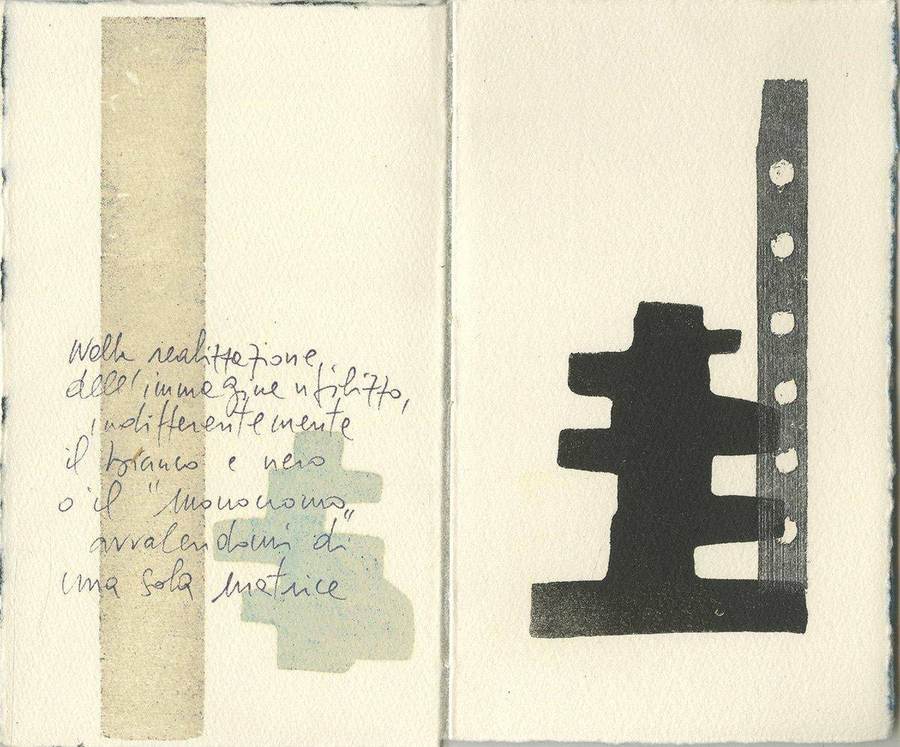 Nella realizzazione,
dell'immagine utilizzo,
indifferentemente
il bianco e nero
o il "monocromo"
avvalendomi di
una sola matrice